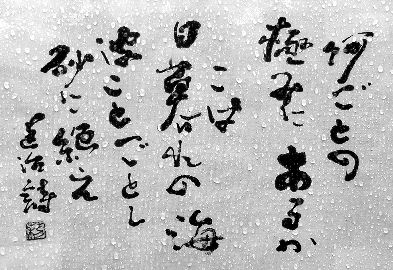 何ごとの
極みに来るか
こは
日暮れの海
波ことごとく
砂に絶え
達治詩